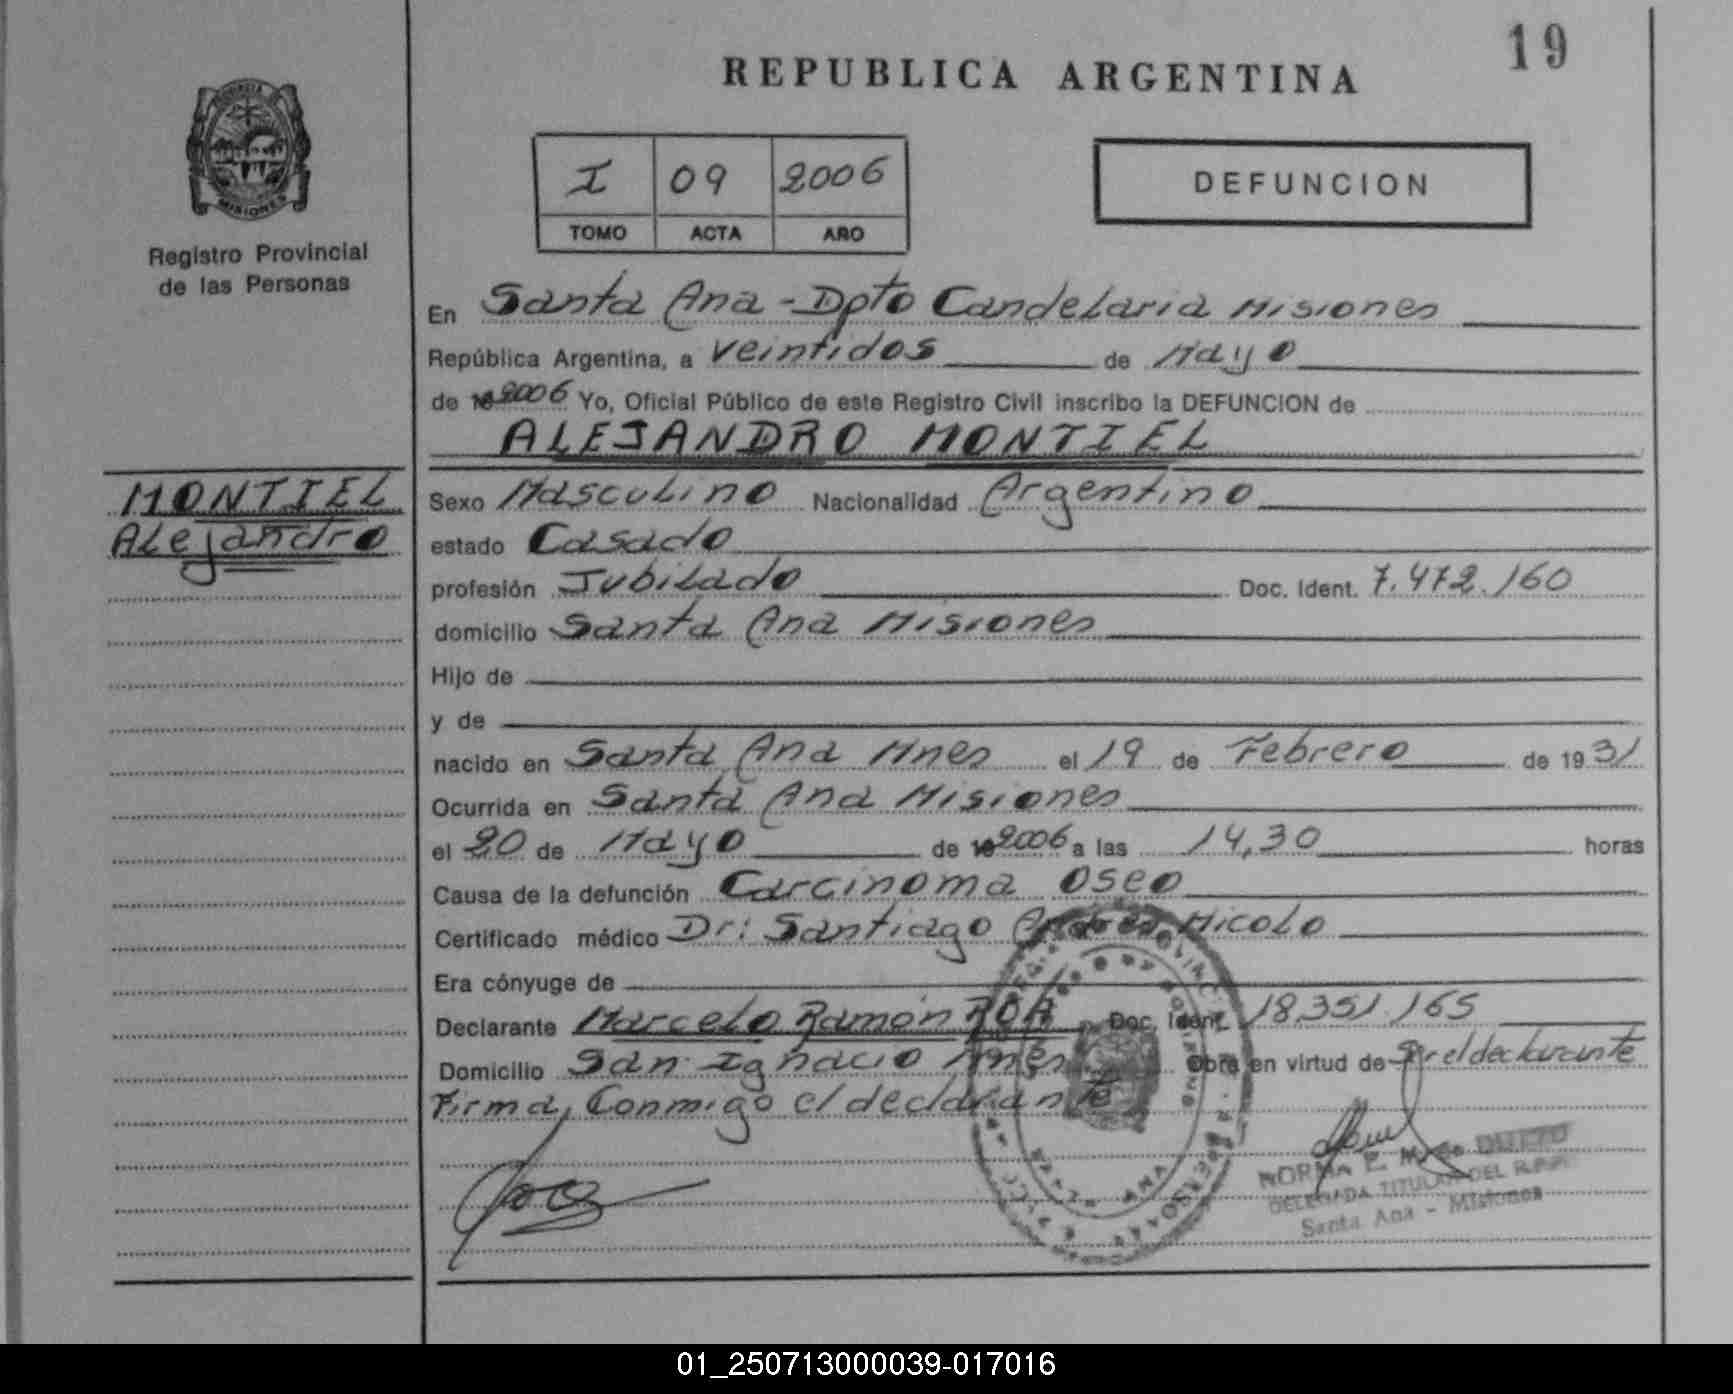 19
REPUBLICA ARGENTINA
PROVINCIA
MISIONES
Registro Provincial
de las Personas
I 09 2006
TOMO ACTA AÑO
DEFUNCION
En Santa Ana - Dpto Candelaria Misiones
República Argentina, a Veintidos de Mayo
de 19 2006 Yo, Oficial Público de este Registro Civil inscribo la DEFUNCION de
ALEJANDRO MONTIEL
MONTIEL
Alejandro
Sexo Masculino Nacionalidad Argentino
estado Casado
profesión Jubilado Doc. Ident. 7.472.160
domicilio Santa Ana Misiones
Hijo de
y de
nacido en Santa Ana Mnes el 19 de Febrero de 1931
Ocurrida en Santa Ana Misiones
el 20 de Mayo de 19 2006 a las 14,30 horas
Causa de la defunción Carcinoma Oseo
Certificado médico Dr: Santiago Andres Micolo
Era cónyuge de
Declarante Marcelo Ramón ROA Doc. Ident. 18.351.165
Domicilio San Ignacio Mnes Obra en virtud de Ser el declarante
Firma, Conmigo el declarante
NORMA E.
DELEGADA TITULAR DEL R.P.P.
Santa Ana - Misiones
01_250713000039-017016